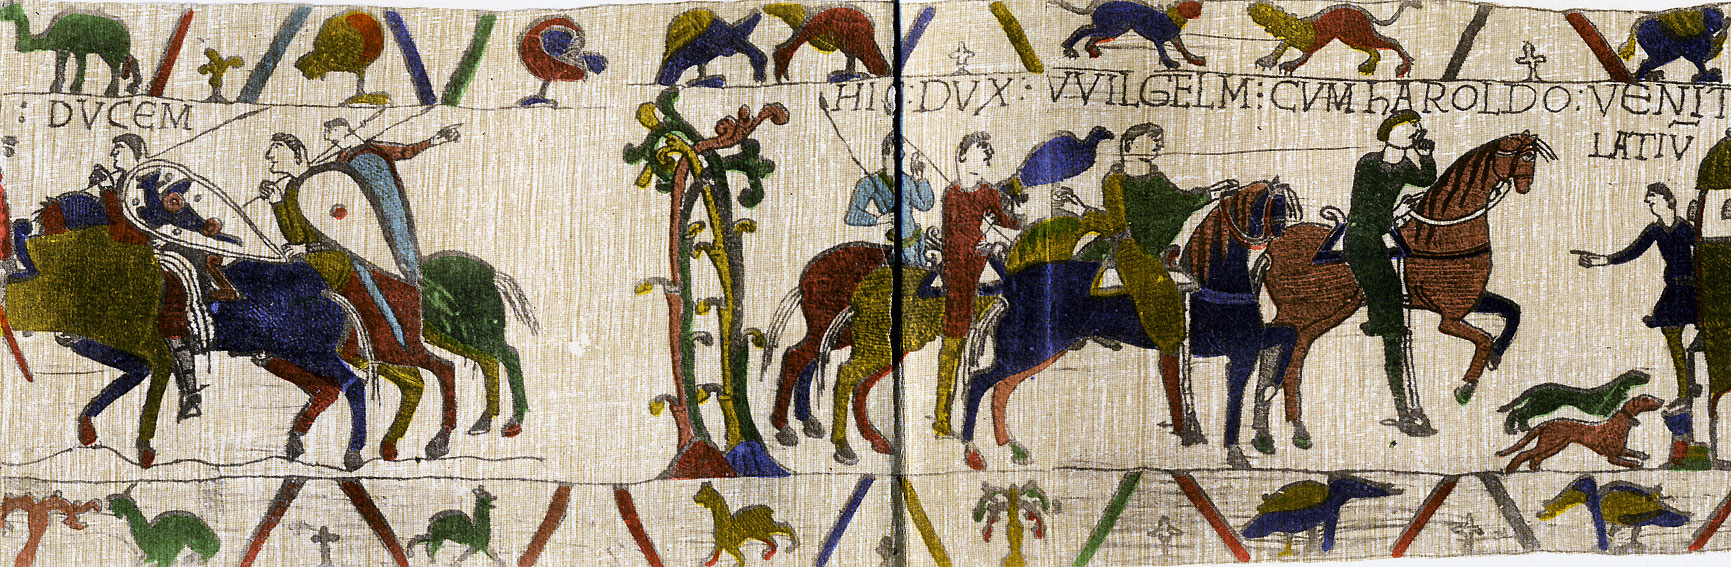 : DVCEM
HIC : DVX : VVILGELM : CVM hAROLDO : VENIT
LATIV